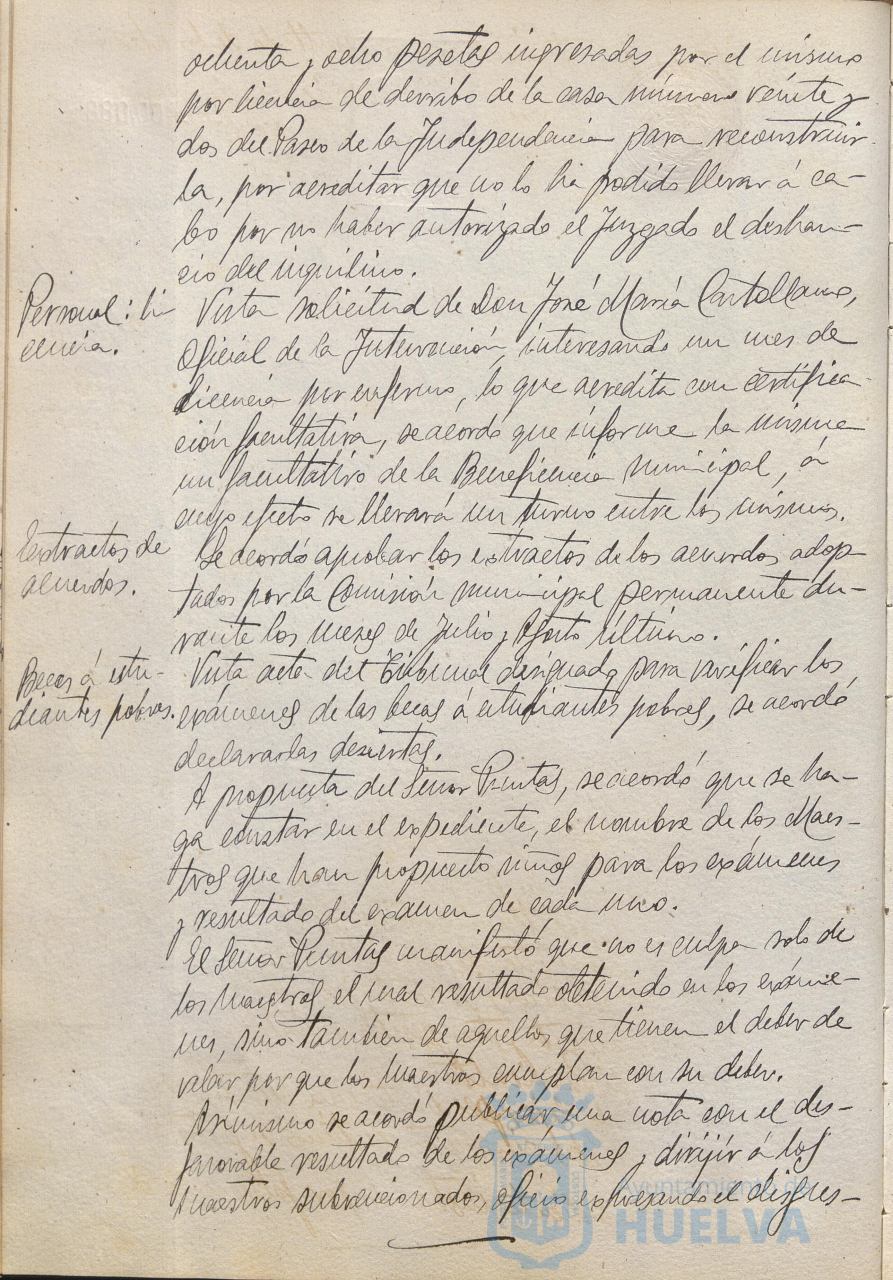 ochenta y ocho pesetas ingresadas por el mismo
por licencia de derribo de la casa número veinte y
dos del Paseo de la Independencia para reconstruir
la, por acreditar que no lo ha podido llevar á ca-
bo por no haber autorizado el Juzgado el deshau-
cio del inquilino.
Personal: li
cencia.
Vista solicitud de Don José María
Oficial de la Intervención, interesando un mes de
licencia por enfermo, lo que acredita con certifica-
ción facultativa, se acordó que informe la misma
un facultativo de la Beneficencia municipal, á
cuyo efecto se llevará un turno entre los mismos.
Extractos de
acuerdos.
Se acordó aprobar los extractos de los acuerdos adop-
tados por la Comisión municipal permanente du-
rante los meses de Julio y Agosto último.
Becas á estu-
diantes pobres.
Vista acta del Tribunal designado para verificar los
exámenes de las becas á estudiantes pobres, se acordó
declararlas desiertas.
A propuesta del Señor Puntas, se acordó que se ha-
ga constar en el expediente, el nombre de los Maes-
tros que han propuesto niños para los exámenes
y resultado del examen de cada uno.
El Señor Puntas manifestó que no es culpa solo de
los maestros, el mal resultado obtenido en los exáme-
nes, sino también de aquellos que tienen el deber de
velar por que los maestros cumplan con su deber.
Asimismo se acordó publicar una nota con el des-
favorable resultado de los exámenes y dirijir á los
maestros subvencionados, oficio expresando el disgus-
Ayuntamiento de
HUELVA